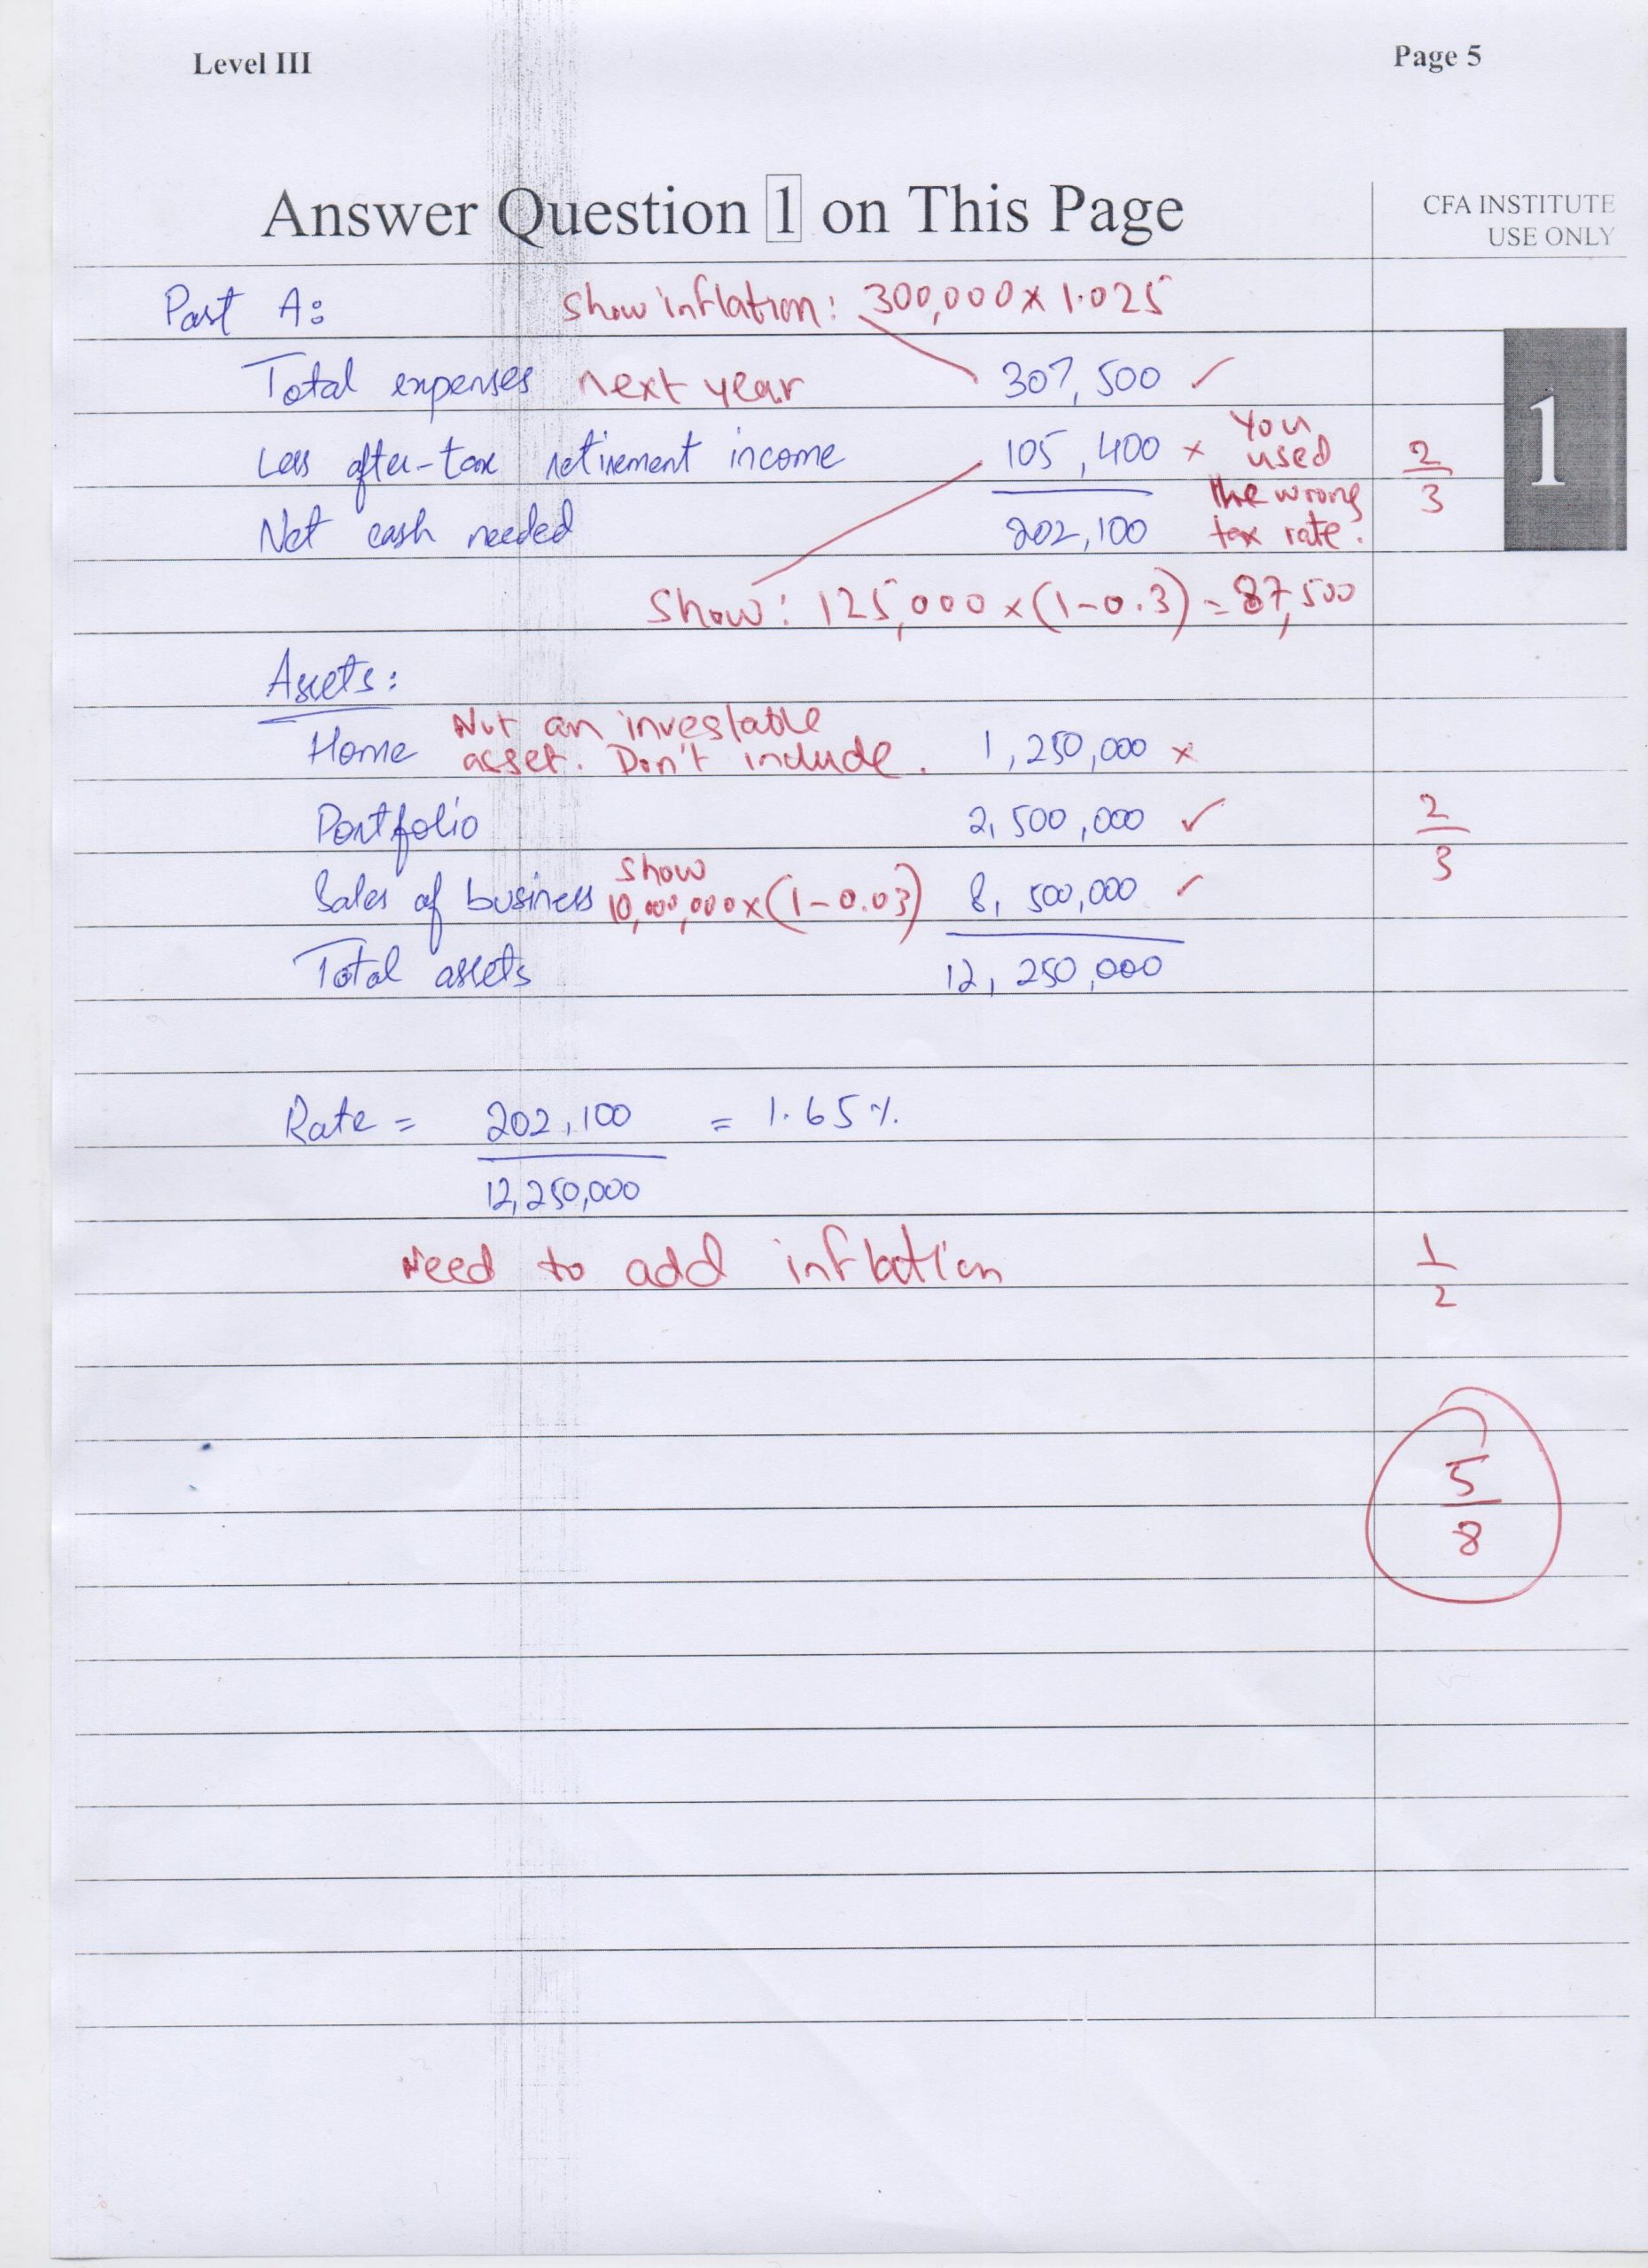 Level III
Page 5
Answer Question 1 on This Page
CFA INSTITUTE
USE ONLY
Part A: Show inflation: 300,000 x 1.025
Total expenses next year 307,500 ✓
1
Less after-tax retirement income 105,400 x You used the wrong tax rate.
2/3
Net cash needed 202,100
Show: 125,000 x (1-0.3) = 87,500
Assets:
Home Not an investable asset. Don't include. 1,250,000 x
Portfolio 2,500,000 ✓
2/3
Sales of business Show 10,000,000 x (1-0.03) 8,500,000 ✓
Total assets 12,250,000
Rate = 202,100 = 1.65%
12,250,000
Need to add inflation
1/2
5/8